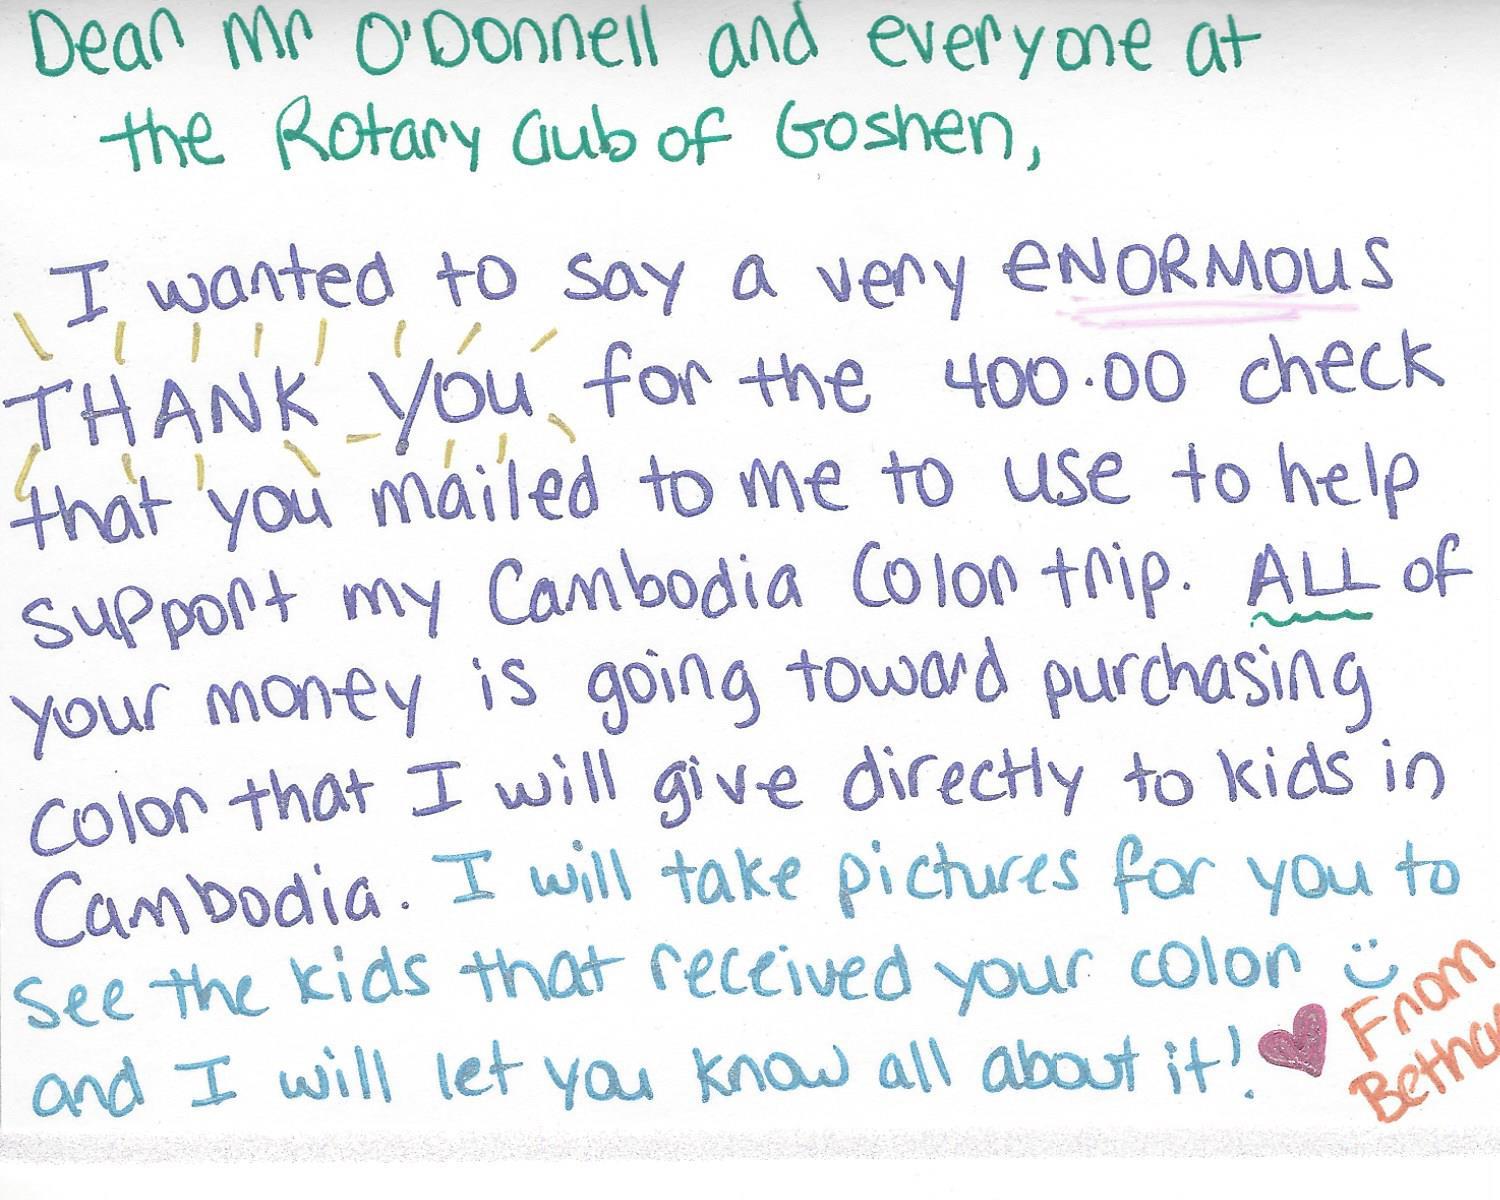 Dear Mr O'Donnell and everyone at
the Rotary Club of Goshen,
I wanted to say a very eNORMOUS
THANK YOU for the 400.00 check
that you mailed to me to use to help
support my Cambodia Color trip. ALL of
your money is going toward purchasing
color that I will give directly to kids in
Cambodia. I will take pictures for you to
see the kids that received your color :)
and I will let you know all about it!
From